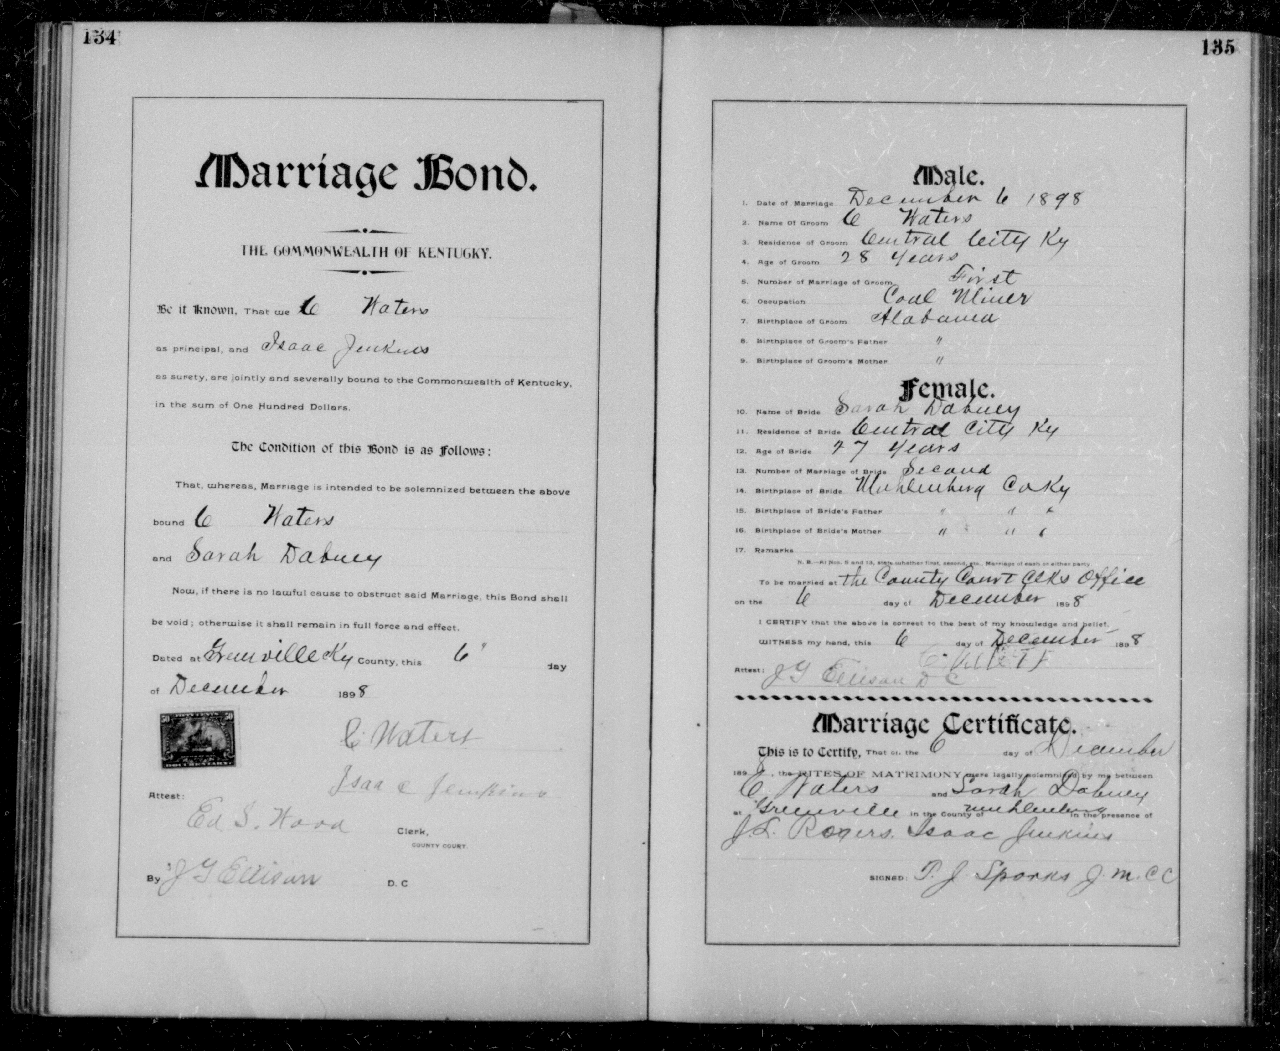 134
Marriage Bond.
THE COMMONWEALTH OF KENTUCKY.
Be it Known, That we C Waters
as principal, and Isaac Jenkins
as surety, are jointly and severally bound to the Commonwealth of Kentucky,
in the sum of One Hundred Dollars.
The Condition of this Bond is as Follows:
That, whereas, Marriage is intended to be solemnized between the above
bound C Waters
and Sarah Dabney
Now, if there is no lawful cause to obstruct said Marriage, this Bond shall
be void; otherwise it shall remain in full force and effect.
Dated at Greenville Ky County, this 6" day
of December 1898
50 FIFTY CENTS 50
DOCUMENTARY
C Waters
Isaac Jenkins
Attest:
Ed S. Wood Clerk,
COUNTY COURT.
By J G Ellison D. C
135
Male.
1. Date of Marriage December 6 1898
2. Name Of Groom C Waters
3. Residence of Groom Central City Ky
4. Age of Groom 28 Years
5. Number of Marriage of Groom First
6. Occupation Coal Miner
7. Birthplace of Groom Alabama
8. Birthplace of Groom's Father "
9. Birthplace of Groom's Mother "
Female.
10. Name of Bride Sarah Dabney
11. Residence of Bride Central City Ky
12. Age of Bride 27 Years
13. Number of Marriage of Bride Second
14. Birthplace of Bride Muhlenberg Co Ky
15. Birthplace of Bride's Father " " "
16. Birthplace of Bride's Mother " " "
17. Remarks
N. B.—At Nos. 5 and 13, state whether first, second, etc., Marriage of each or either party
To be married at the County Court Clks Office
on the 6 day of December 1898
I CERTIFY that the above is correct to the best of my knowledge and belief.
WITNESS my hand, this 6 day of December 1898
Attest: J G Ellison D C
Marriage Certificate.
This is to Certify, That on the 6 day of December
1898, the RITES OF MATRIMONY were legally solemnized by me between
C Waters and Sarah Dabney
at Greenville in the County of Muhlenberg in the presence of
J. L. Rogers, Isaac Jenkins
SIGNED: T. J Sparks J. M. C C